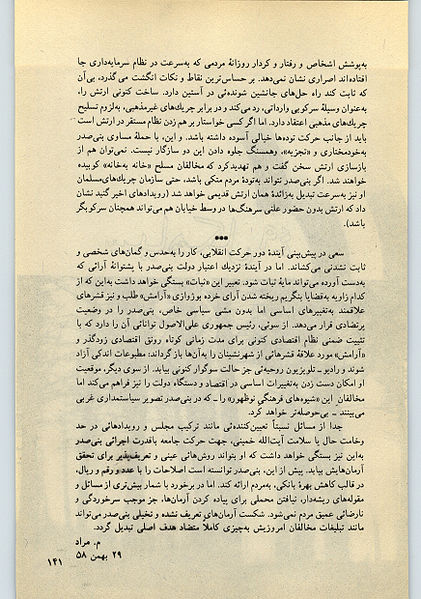 به‌پوشش اشخاص و رفتار و کردار روزانهٔ مردمی که به‌سرعت در نظام سرمایه‌داری جا
افتاده‌اند اصراری نشان نمی‌دهد. بر حساس‌ترین نقاط و نکات انگشت می‌گذرد، بی‌آن
که ثابت کند راه حل‌های جانشین شونده‌ئی در آستین دارد. ساخت کنونی ارتش را،
به‌عنوان وسیلهٔ سرکوبی وارداتی، رد می‌کند و در برابر چریك‌های غیرمذهبی، به‌لزوم تسلیح
چریك‌های مذهبی اعتقاد دارد. اما اگر کسی خواستار بر هم زدن نظام مستقر در ارتش است
باید از جانب حرکت توده‌ها خیالی آسوده داشته باشد. و این، با حملهٔ مساوی بنی‌صدر
به‌خودمختاری و «تجزیه»، وهمسنگ جلوه دادن این دو سازگار نیست. نمی‌توان هم از
بازسازی ارتش سخن گفت و هم تهدیدکرد که مخالفان مسلح «خانه به‌خانه» کوبیده
خواهند شد. اگر بنی‌صدر نتواند به‌تودهٔ مردم متکی باشد، حتی سازمان چریك‌های‌مسلمان
او نیز به‌سرعت تبدیل به‌زائدهٔ همان ارتش قدیمی خواهد شد (رویدادهای اخیر گنبد نشان
داد که ارتش بدون حضور علنی سرهنگ‌ها در وسط خیابان هم می‌تواند همچنان سرکوبگر
باشد).
***
سعی در پیش‌بینی آیندهٔ دور حرکت انقلابی، کار را به‌حدس و گمان‌های شخصی و
ثابت نشدنی می‌کشاند. اما در آیندهٔ نزدیك اعتبار دولت بنی‌صدر با پشتوانهٔ آرائی که
به‌دست آورده می‌تواند مایهٔ ثبات شود. تعبیر این «ثبات» بستگی خواهد داشت به‌این که از
کدام زاویه به‌قضایا بنگریم ریخته شدن آرای خرده بورژوازی «آرامش» طلب و نیز قشرهای
علاقمند به‌تغییرهای اساسی اما بدون مشی سیاسی خاص، بنی‌صدر را در وضعیت
پرتضادی قرار می‌دهد. از سوئی، رئیس جمهوری علی‌الاصول توانائی آن را دارد که با
تثبیت ضمنی نظام اقتصادی کنونی برای مدت زمانی کوتاه رونق اقتصادی زودگذر و
«آرامش» مورد علاقهٔ قشرهائی از شهرنشینان را به‌آن‌ها باز گرداند؛ مطبوعات اندکی آزاد
شوند و رادیو ـ تلویزیون روحیه‌ئی جز حالت سوگوار کنونی بیابد. از سوی دیگر، موقعیت
او امکان دست زدن به‌تغییرات اساسی در اقتصاد و دستگاه دولت را نیز فراهم می‌کند اما
مخالفان این «شیوه‌های فرهنگی نوظهور» را ـ که در بنی‌صدر تصویر سیاستمداری غربی
می‌بینند ـ بی‌حوصله‌تر خواهد کرد.
جدا از مسائل نسبتاً تعیین‌کننده‌ئی مانند ترکیب مجلس و رویدادهائی در حد
وخامت حال یا سلامت آیت‌الله خمینی، جهت حرکت جامعه باقدرت اجرائی بنی‌صدر
به‌این نیز بستگی خواهد داشت که او بتواند روش‌هائی عینی و تعریف‌پذیر برای تحقق
آرمان‌هایش بیابد. پیش از این، بنی‌صدر توانسته است اصلاحات را با عدد و رقم و ریال،
در قالب کاهش بهرهٔ بانکی، به‌مردم ارائه کند. اما در برخورد با شمار بیش‌تری از مسائل و
مقوله‌های ریشه‌دار، نیافتن محملی برای پیاده کردن آرمان‌ها، جز موجب سرخوردگی و
نارضائی عمیق مردم نمی‌شود. شکست آرمان‌های تعریف نشده و تخیلی بنی‌صدر می‌تواند
مانند تبلیغات مخالفان امروزیش به‌چیزی کاملاً متضاد هدف اصلی تبدیل گردد.
م. مراد
۲۹ بهمن ۵۸
۱۴۱